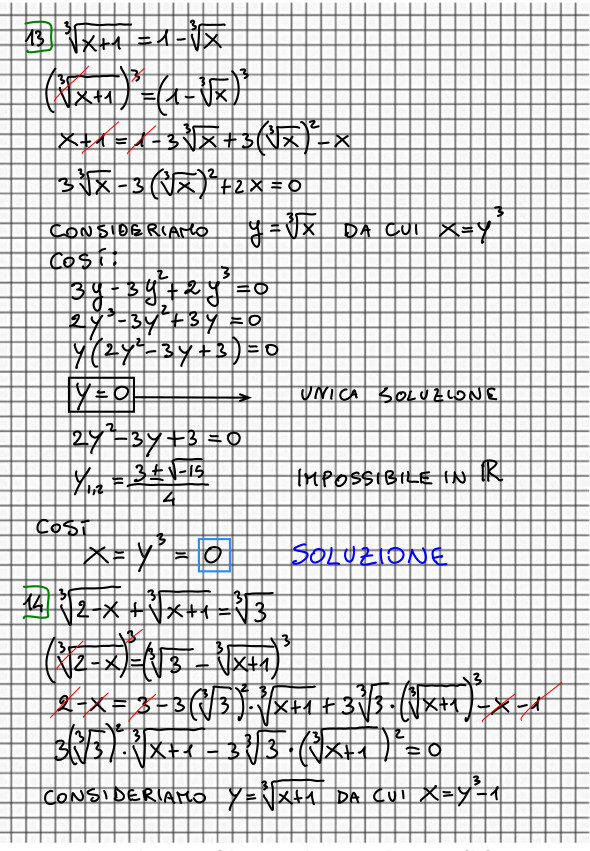 13 ∛(x+1) = 1 - ∛x
(∛(x+1))³ = (1 - ∛x)³
x + 1 = 1 - 3∛x + 3(∛x)² - x
3∛x - 3(∛x)² + 2x = 0
CONSIDERIAMO y = ∛x DA CUI x = y³
COSÍ:
3y - 3y² + 2y³ = 0
2y³ - 3y² + 3y = 0
y(2y² - 3y + 3) = 0
y = 0 → UNICA SOLUZIONE
2y² - 3y + 3 = 0
y₁,₂ = (3 ± √-15)/4 IMPOSSIBILE IN ℝ
COSÍ
x = y³ = 0 SOLUZIONE
14 ∛(2-x) + ∛(x+1) = ∛3
(∛(2-x))³ = (∛3 - ∛(x+1))³
2 - x = 3 - 3(∛3)² · ∛(x+1) + 3∛3 · (∛(x+1))³ - x - 1
3(∛3)² · ∛(x+1) - 3∛3 · (∛(x+1))² = 0
CONSIDERIAMO y = ∛(x+1) DA CUI x = y³-1